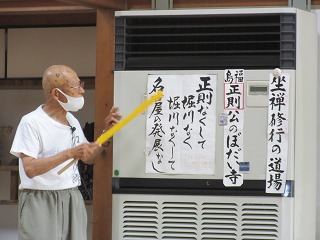 坐禅修行の道場
福島
正則公のぼだい寺
正則なくして
堀川なく
堀川なくして
名古屋の発展なし